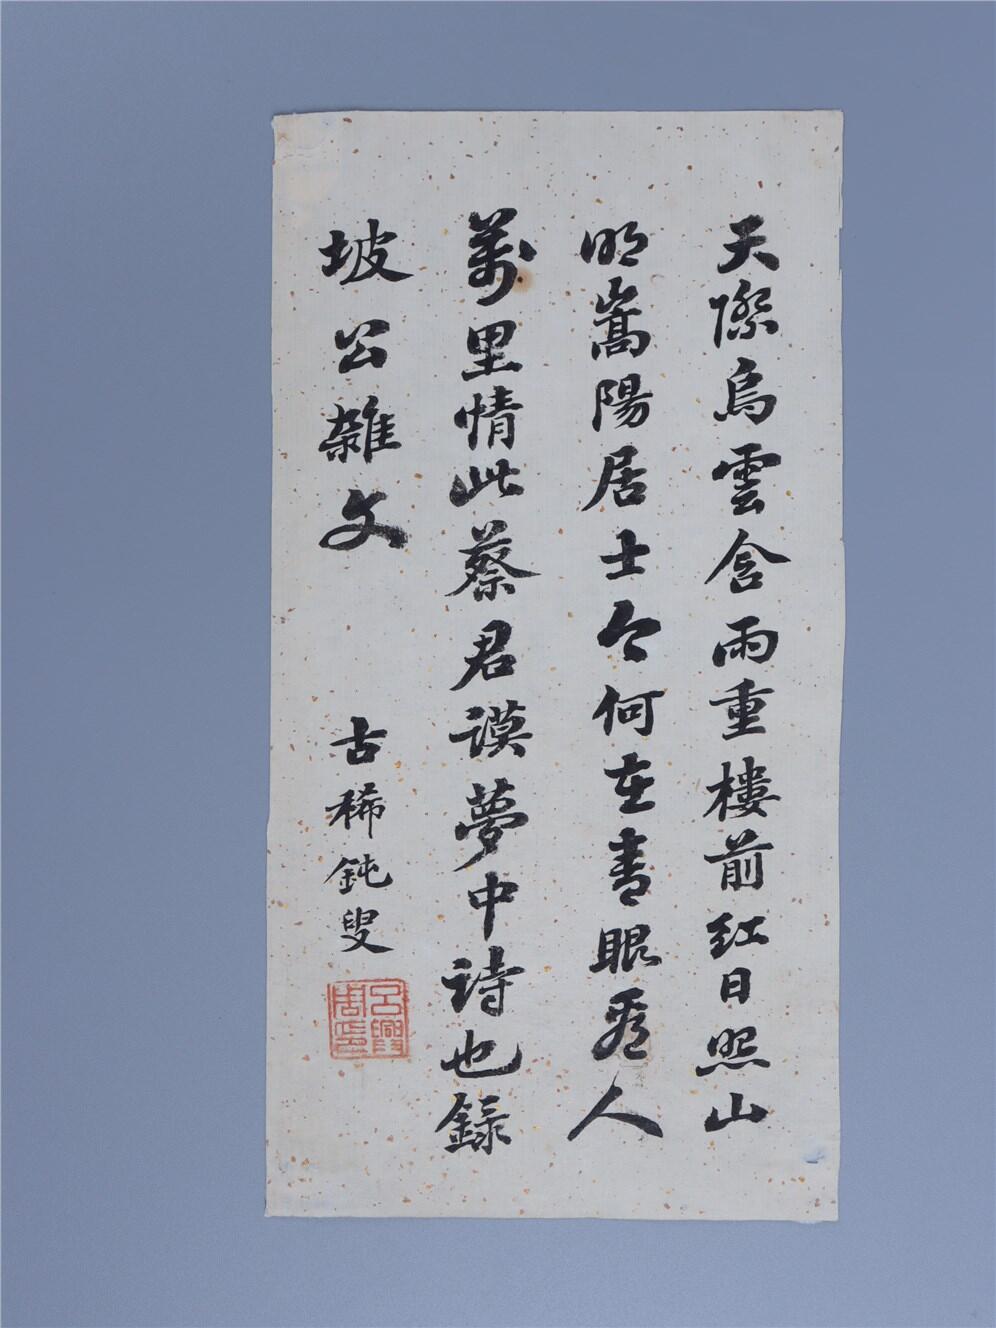 天際烏雲含雨重樓前紅日照山
明嵩陽居士今何在青眼看人
萬里情此蔡君謨夢中詩也錄
坡公雜文
古稀鈍叟